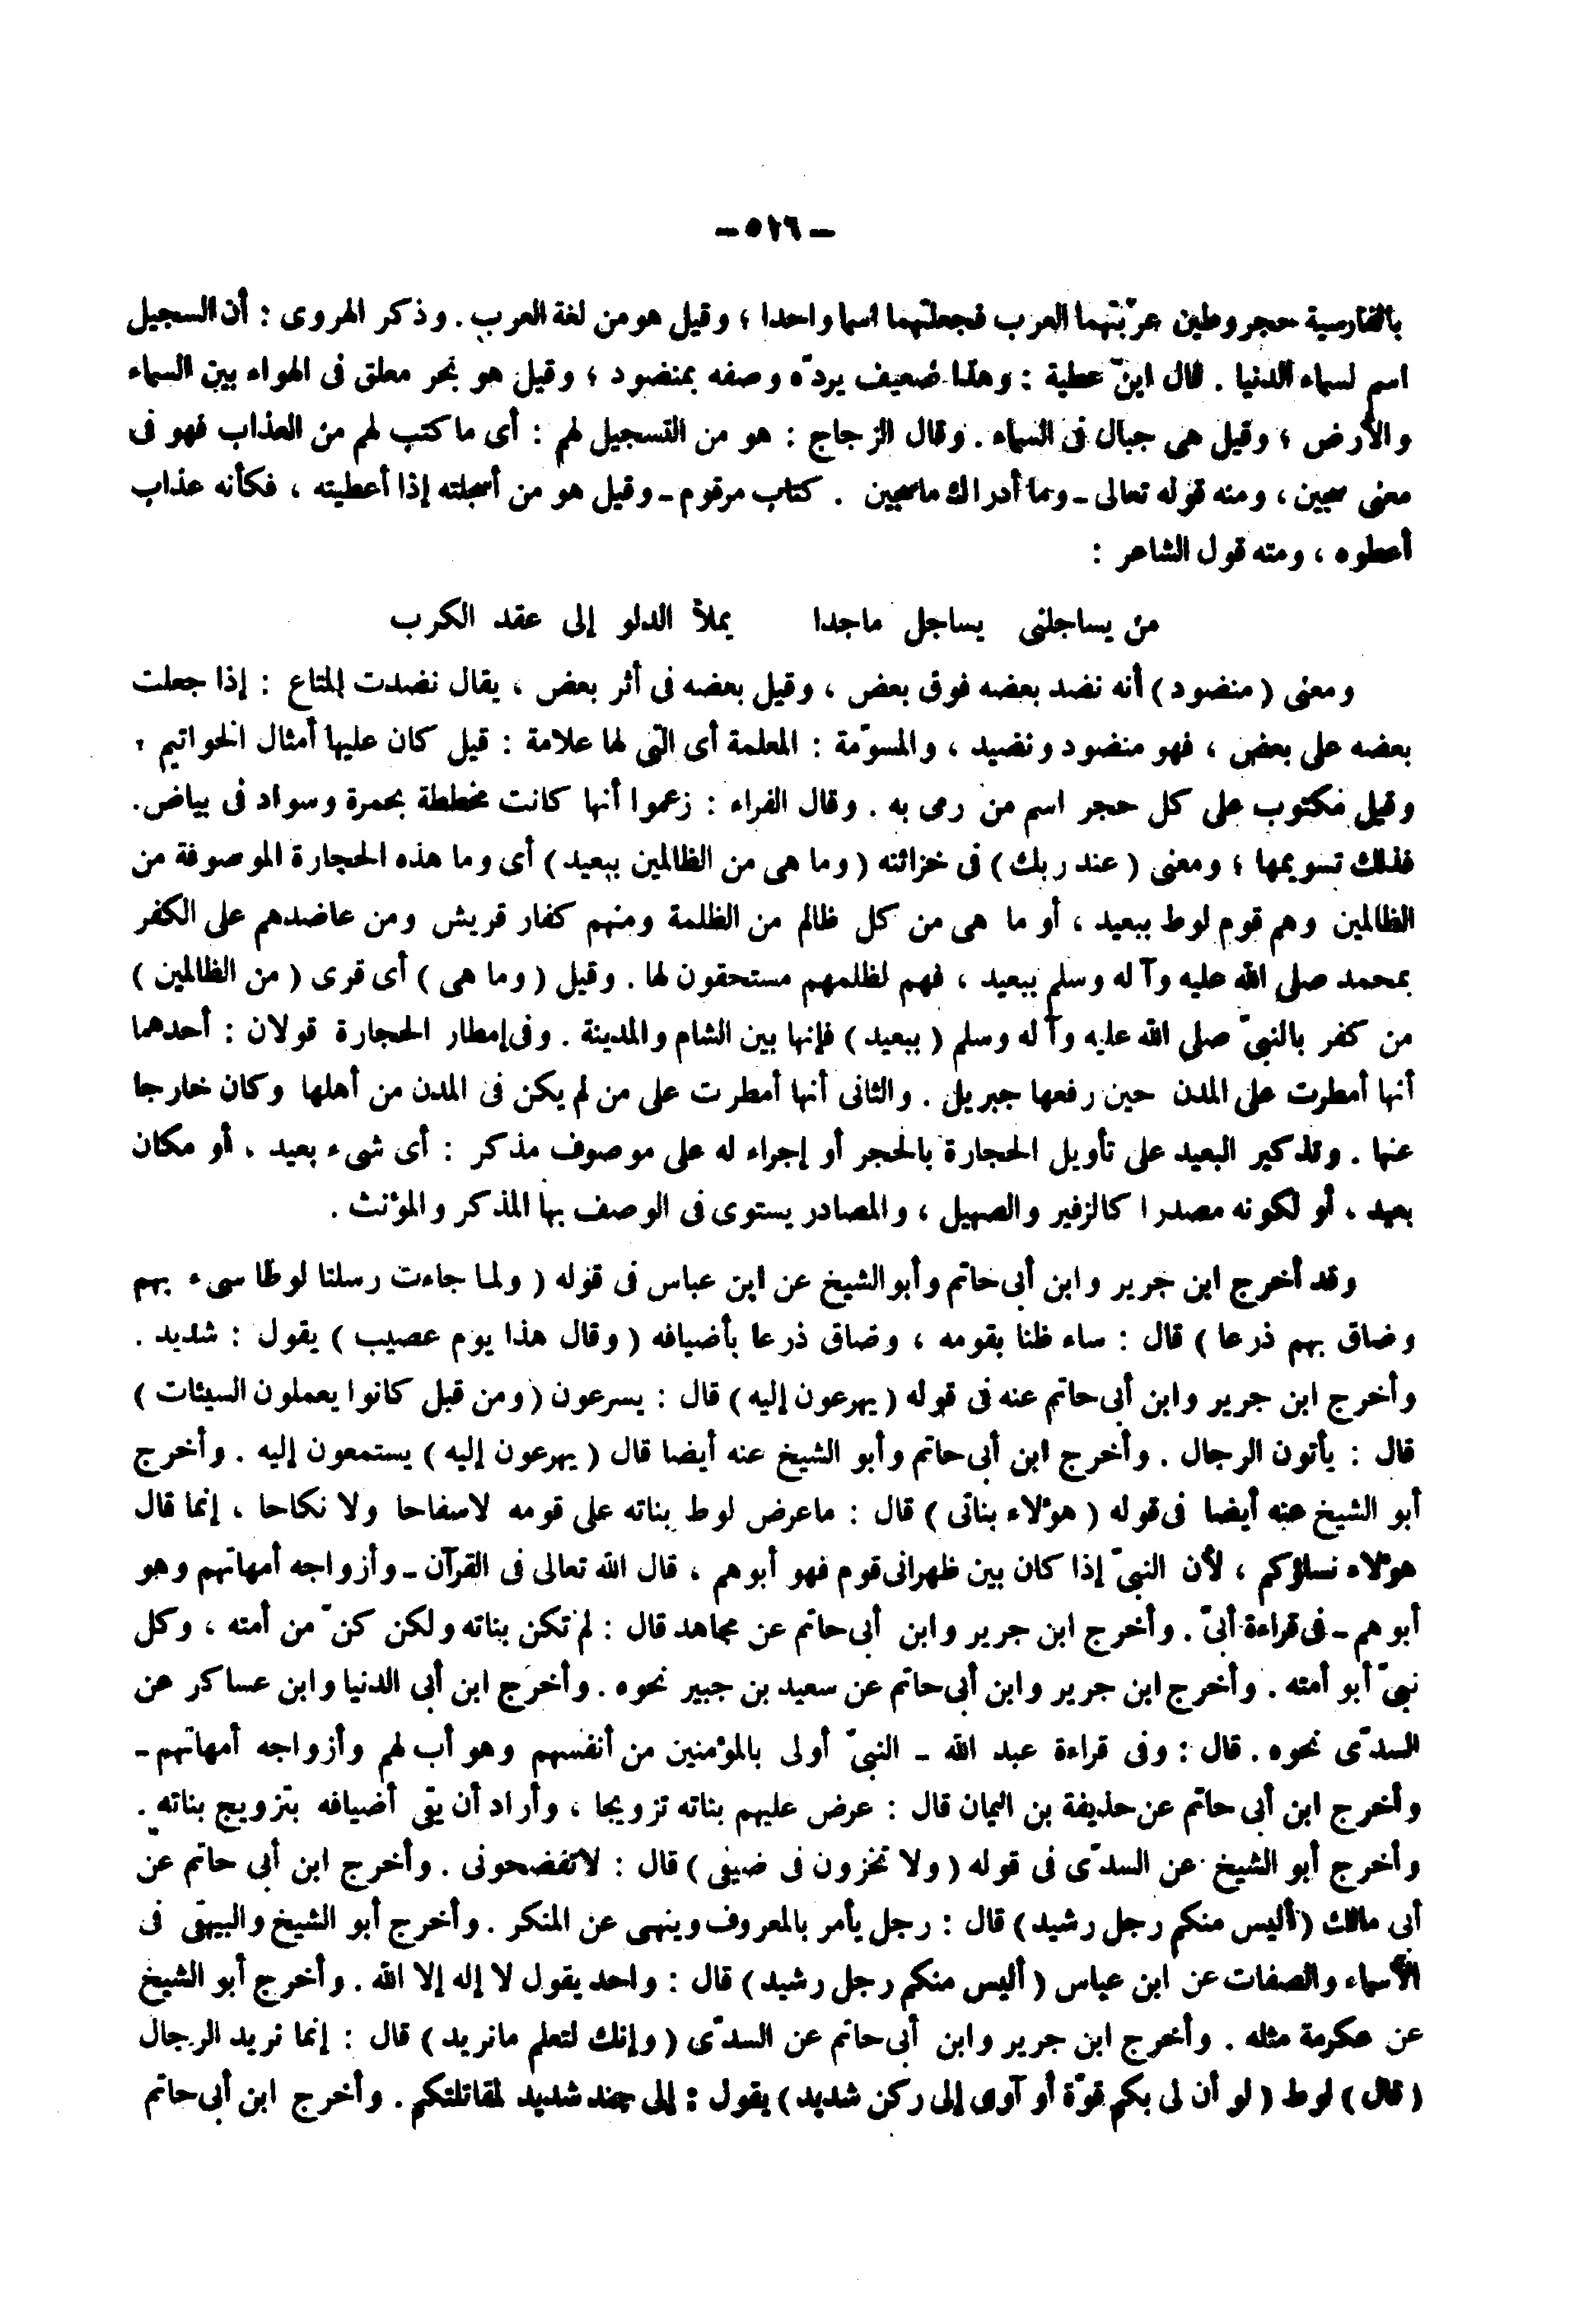 – ٥١٦ –
بالفارسية حجر وطين عرّبتهما العرب فجعلتهما اسما واحدا ؛ وقيل هو من لغة العرب . وذكر الهروى : أن السجيل
اسم لسماء الدنيا . قال ابن عطية : وهذا ضعيف يردّه وصفه بمنضود ؛ وقيل هو بحر معلق فى الهواء بين السماء
والأرض ؛ وقيل هى جبال فى السماء . وقال الزجاج : هو من التسجيل لهم : أى ما كتب لهم من العذاب فهو فى
معنى سجين ، ومنه قوله تعالى – وما أدراك ما سجين . كتاب مرقوم – وقيل هو من أسجلته إذا أعطيته ، فكأنه عذاب
أعطوه ، ومنه قول الشاعر :
من يساجلنى يساجل ماجدا يملأ الدلو إلى عقد الكرب
ومعنى ( منضود ) أنه نضد بعضه فوق بعض ، وقيل بعضه فى أثر بعض ، يقال نضدت المتاع : إذا جعلت
بعضه على بعض ، فهو منضود ونضيد ، والمسوّمة : المعلمة أى التى لها علامة : قيل كان عليها أمثال الخواتيم ،
وقيل مكتوب على كل حجر اسم من رمى به . وقال الفراء : زعموا أنها كانت مخططة بحمرة وسواد فى بياض .
فذلك تسويمها ؛ ومعنى ( عند ربك ) فى خزائنه ( وما هى من الظالمين ببعيد ) أى وما هذه الحجارة الموصوفة من
الظالمين وهم قوم لوط ببعيد ، أو ما هى من كل ظالم من الظلمة ومنهم كفار قريش ومن عاضدهم على الكفر
بمحمد صلى الله عليه وآله وسلم ببعيد ، فهم لظلمهم مستحقون لها . وقيل ( وما هى ) أى قرى ( من الظالمين )
من كفر بالنبىّ صلى الله عليه وآله وسلم ( ببعيد ) فإنها بين الشام والمدينة . وفى إمطار الحجارة قولان : أحدهما
أنها أمطرت على المدن حين رفعها جبريل . والثانى أنها أمطرت على من لم يكن فى المدن من أهلها وكان خارجا
عنها . وتذكير البعيد على تأويل الحجارة بالحجر أو إجراء له على موصوف مذكر : أى شىء بعيد ، أو مكان
بعيد ، أو لكونه مصدرا كالزفير والصهيل ، والمصادر يستوى فى الوصف بها المذكر والمؤنث .
وقد أخرج ابن جرير وابن أبى حاتم وأبو الشيخ عن ابن عباس فى قوله ( ولما جاءت رسلنا لوطا سىء بهم
وضاق بهم ذرعا ) قال : ساء ظنا بقومه ، وضاق ذرعا بأضيافه ( وقال هذا يوم عصيب ) يقول : شديد .
وأخرج ابن جرير وابن أبى حاتم عنه فى قوله ( يهرعون إليه ) قال : يسرعون ( ومن قبل كانوا يعملون السيئات )
قال : يأتون الرجال . وأخرج ابن أبى حاتم وأبو الشيخ عنه أيضا قال ( يهرعون إليه ) يستمعون إليه . وأخرج
أبو الشيخ عنه أيضا فى قوله ( هؤلاء بناتى ) قال : ما عرض لوط بناته على قومه لا سفاحا ولا نكاحا ، إنما قال
هؤلاء نساؤكم ، لأن النبىّ إذا كان بين ظهرانى قوم فهو أبوهم ، قال الله تعالى فى القرآن – وأزواجه أمهاتهم وهو
أبوهم – فى قراءة أبىّ . وأخرج ابن جرير وابن أبى حاتم عن مجاهد قال : لم تكن بناته ولكن كنّ من أمته ، وكل
نبىّ أبو أمته . وأخرج ابن جرير وابن أبى حاتم عن سعيد بن جبير نحوه . وأخرج ابن أبى الدنيا وابن عساكر عن
السدّى نحوه . قال : وفى قراءة عبد الله – النبىّ أولى بالمؤمنين من أنفسهم وهو أب لهم وأزواجه أمهاتهم –
وأخرج ابن أبى حاتم عن حذيفة بن اليمان قال : عرض عليهم بناته تزويجا ، وأراد أن يقى أضيافه بتزويج بناته .
وأخرج أبو الشيخ عن السدّى فى قوله ( ولا تخزون فى ضيفى ) قال : لا تفضحونى . وأخرج ابن أبى حاتم عن
أبى مالك ( أليس منكم رجل رشيد ) قال : رجل يأمر بالمعروف وينهى عن المنكر . وأخرج أبو الشيخ والبيهقى فى
الأسماء والصفات عن ابن عباس ( أليس منكم رجل رشيد ) قال : واحد يقول لا إله إلا الله . وأخرج أبو الشيخ
عن عكرمة مثله . وأخرج ابن جرير وابن أبى حاتم عن السدّى ( وإنك لتعلم ما نريد ) قال : إنما نريد الرجال
( قال ) لوط ( لو أن لى بكم قوّة أو آوى إلى ركن شديد ) يقول : إلى جند شديد لمقاتلتكم . وأخرج ابن أبى حاتم